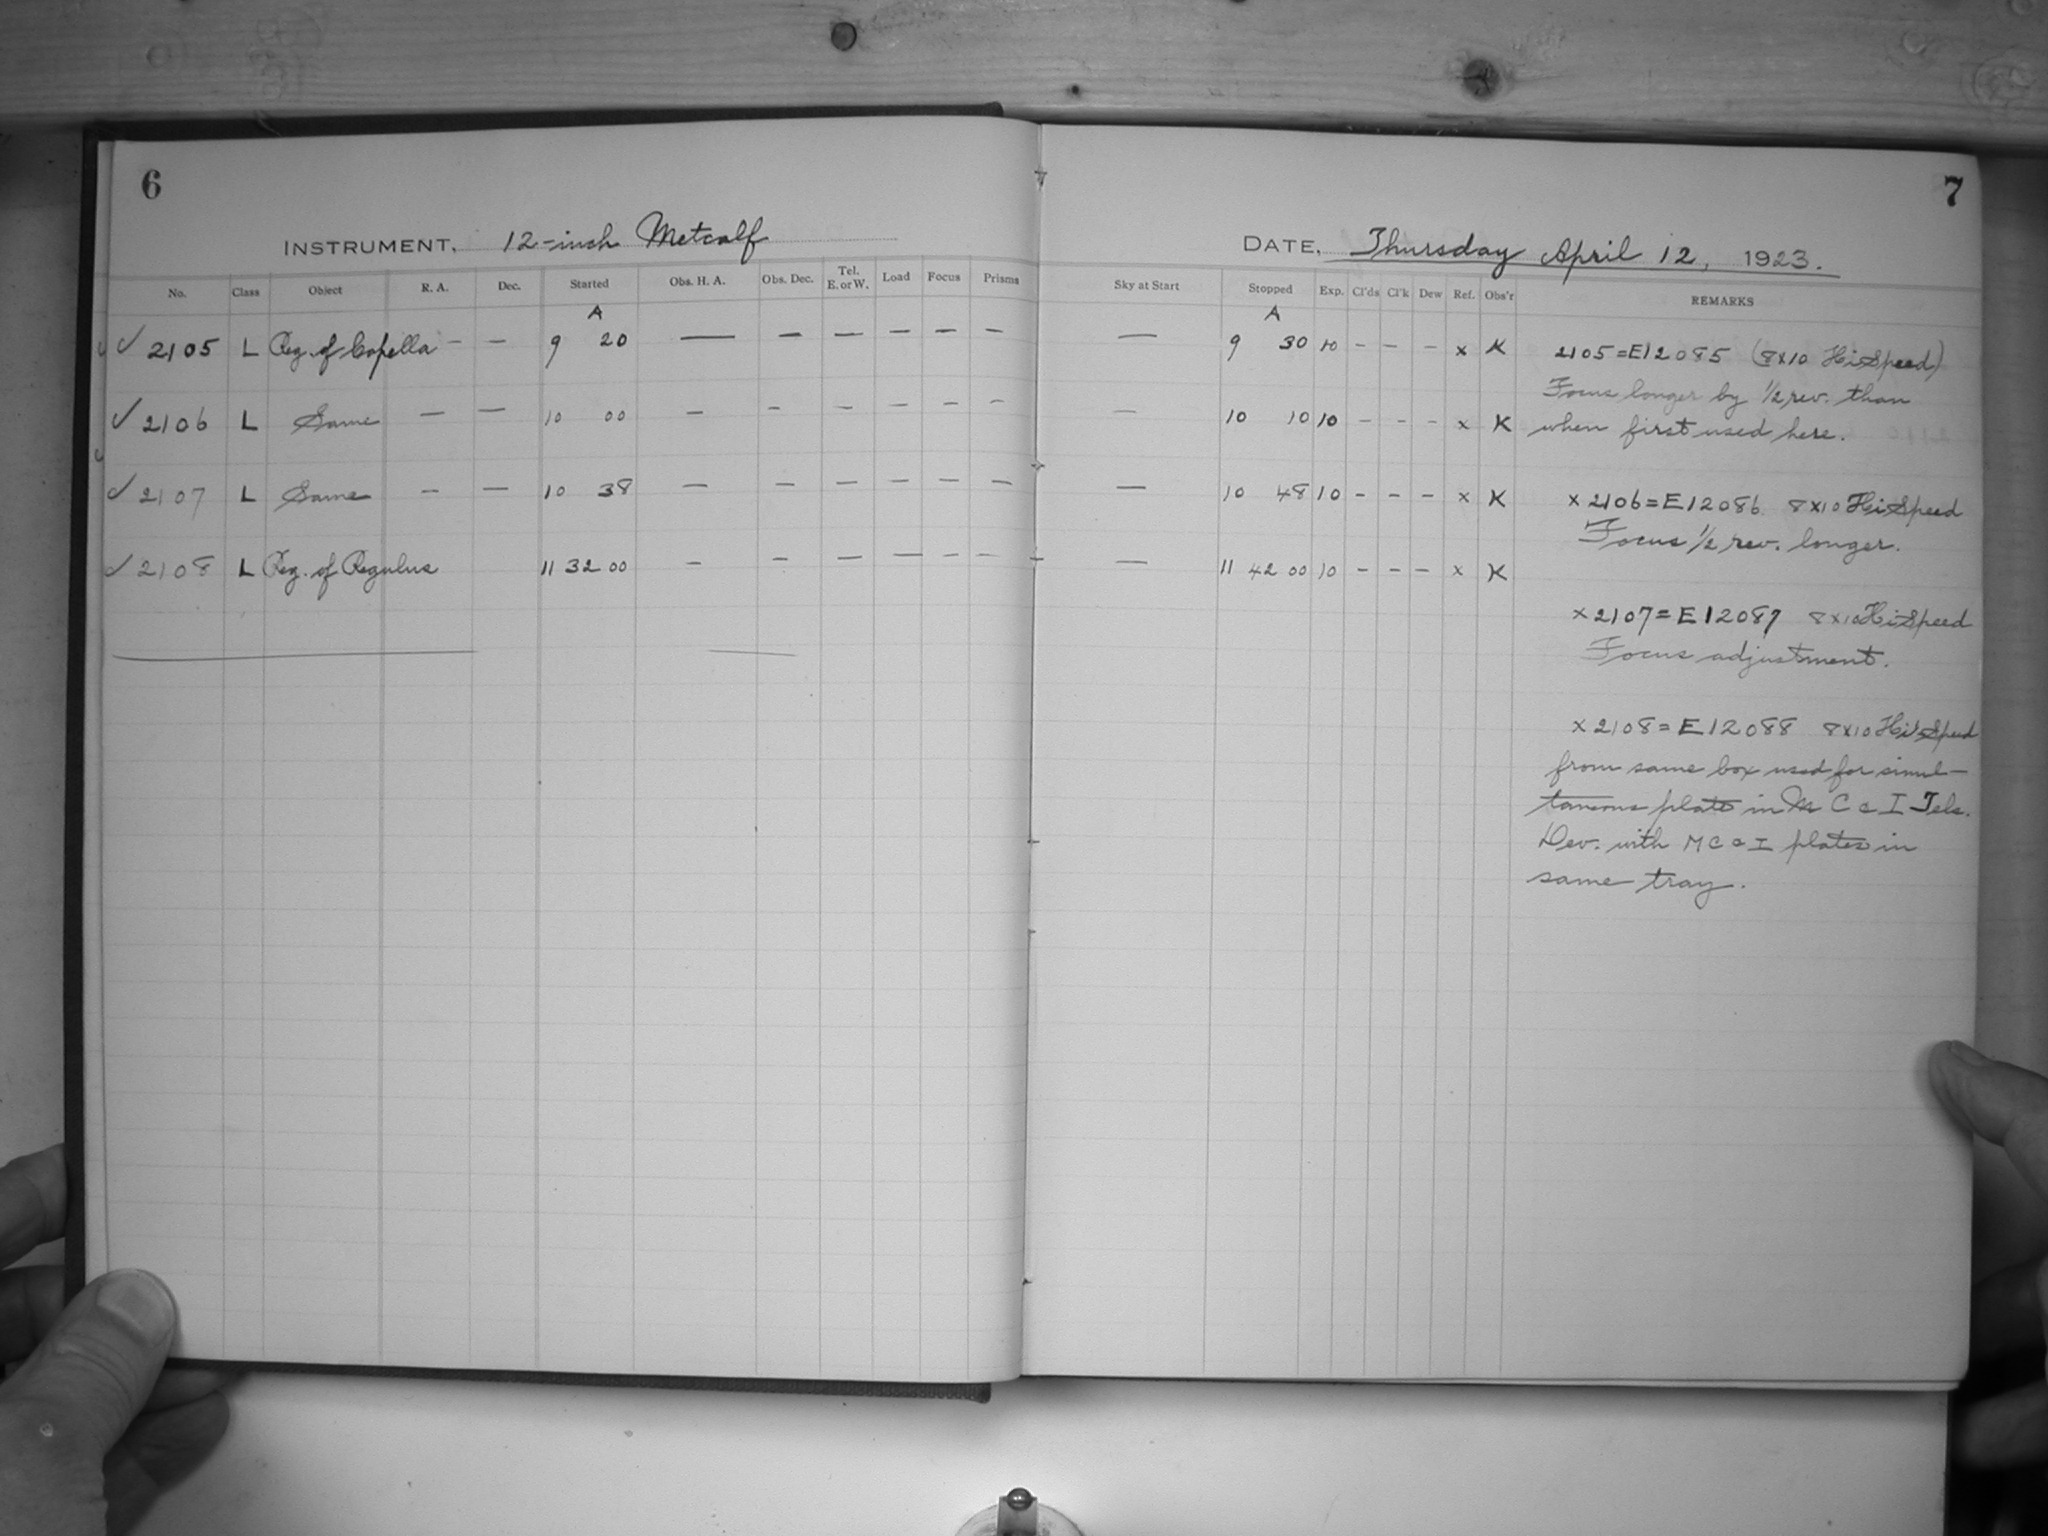 6
7
INSTRUMENT, 12-inch Metcalf
DATE, Thursday April 12, 1923.
No. Class Object R. A. Dec. Started Obs. H. A. Obs. Dec. Tel. E. or W. Load Focus Prisms Sky at Start Stopped Exp. Cl'ds Cl'k Dew Ref. Obs'r REMARKS
A A
✓ 2105 L Reg. of Capella — — 9 20 — — — — — — — 9 30 10 – – – x K
✓ 2106 L Same — — 10 00 — — — — — — — 10 10 10 – – – x K
✓ 2107 L Same — — 10 38 — — — — — — — 10 48 10 – – – x K
✓ 2108 L Reg. of Regulus 11 32 00 — — — — — — — 11 42 00 10 – – – x K
2105=E12085 (8x10 HiSpeed)
Focus longer by 1/2 rev. than
when first used here.
x 2106=E12086 8x10 HiSpeed
Focus 1/2 rev. longer.
x 2107=E12087 8x10 HiSpeed
Focus adjustment.
x 2108=E12088 8x10 HiSpeed
from same box used for simul-
taneous plate in M C & I Tels.
Dev. with M C & I plates in
same tray.